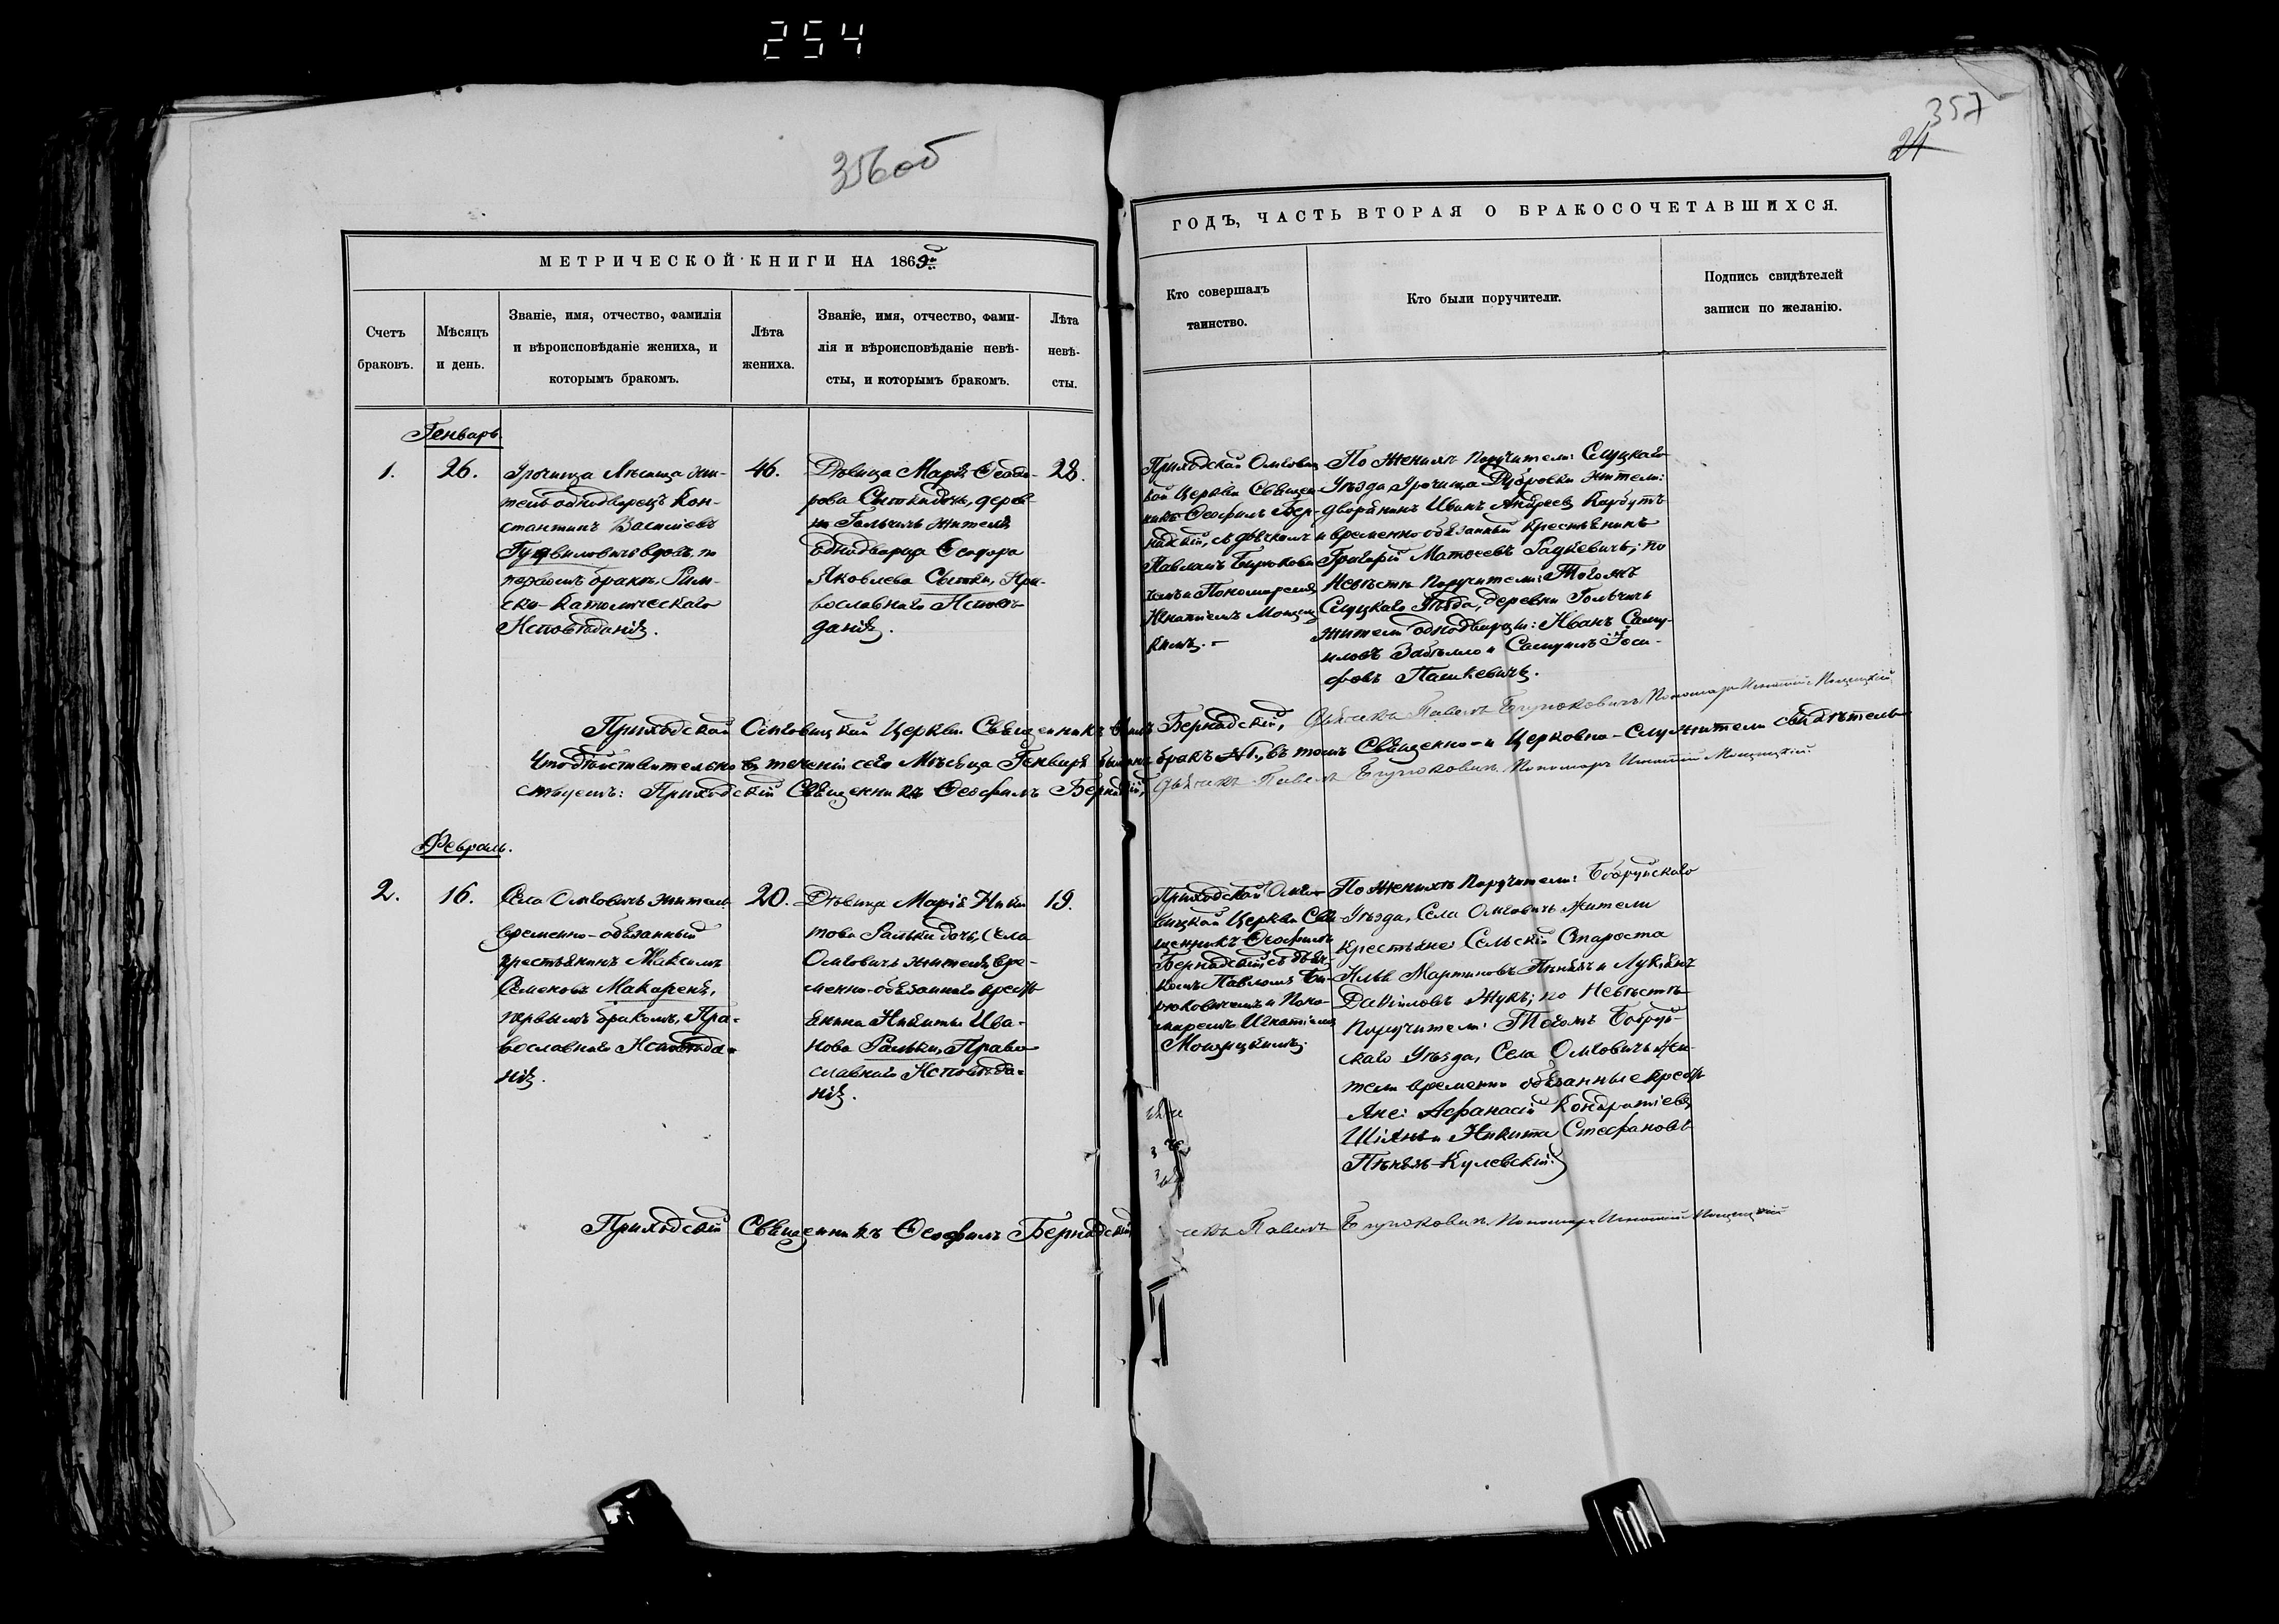 254
356об
357
24
МЕТРИЧЕСКОЙ КНИГИ НА 1869й
Счетъ
браковъ.
Мѣсяцъ
и день.
Званіе, имя, отчество, фамилія
и вѣроисповѣданіе жениха, и
которымъ бракомъ.
Лѣта
жениха.
Званіе, имя, отчество, фами-
лія и вѣроисповѣданіе невѣ-
сты, и которымъ бракомъ.
Лѣта
невѣ-
сты.
ГОДЪ, ЧАСТЬ ВТОРАЯ О БРАКОСОЧЕТАВШИХСЯ.
Кто совершалъ
таинство.
Кто были поручители.
Подпись свидѣтелей
записи по желанію.
Генварь.
1.
26.
Урочища жи-
тель однодворецъ Кон-
стантинъ Васильевъ
вдовъ по
первомъ бракѣ, Рим-
ско-Католическаго
Исповѣданія.
46.
Дѣвица Марія Ѳеодо-
рова дочь, дерев-
ни Гольчичъ жителя
однодворца Ѳеодора
Яковлева Сытки, Пра-
вославнаго Исповѣ-
данія.
28.
Приходской Омговиц-
кой Церкви Священ-
никъ Ѳеофилъ Бер-
надскій, съ дьячкомъ
Павломъ Бирюкови-
чемъ и Пономаремъ
Игнатіемъ Мощиц-
кимъ.
По Женихѣ Поручители: Слуцкаго
Уѣзда, Урочища Дубровки жители:
дворянинъ Иванъ Андреевъ Карбутъ
и временно обязанный Крестьянинъ
Григорій Матѳеевъ Радкевичъ; по
Невѣстѣ Поручители: Тогожъ
Слуцкаго Уѣзда, деревни Гольчичъ
жители однодворцы: Иванъ Саму-
иловъ Забѣлло и Самуилъ Іоси-
фовъ Пашкевичъ.
Приходской Омговицкой Церкви Священникъ Бернадскій, Дьячекъ Павелъ Бирюковичъ Пономарь Игнатій Мощицкій
Что дѣйствительно въ теченіи сего Мѣсяца Генваря былъ бракъ №1, въ томъ Священно- и Церковно-Служители свидѣтель-
ствуемъ: Приходскій Священникъ Ѳеофилъ Бернадскій, Дьячекъ Павелъ Бирюковичъ Пономарь Игнатій Мощицкій
Февраль.
2.
16.
Села Омговичъ житель
временно-обязанный
крестьянинъ Максимъ
Семеновъ Макареня,
первымъ бракомъ, Пра-
вославнаго Исповѣда-
нія.
20.
Дѣвица Марія Ники-
това дочь, Села
Омговичъ жителя, вре-
менно-обязаннаго кресть-
янина Никиты Ива-
нова Право-
славнаго Исповѣда-
нія.
19.
Приходской Омго-
вицкой Церкви Свя-
щенникъ Ѳеофилъ
Бернадскій съ дьяч-
комъ Павломъ Би-
рюковичемъ и Поно-
маремъ Игнатіемъ
Мощицкимъ.
По Женихѣ Поручители: Бобруйскаго
Уѣзда, Села Омговичъ Жители
крестьяне: Сельскій Староста
Илья Мартиновъ и Лукіянъ
Даніиловъ Жукъ; по Невѣстѣ
Поручители: Тогожъ Бобруй-
скаго Уѣзда, Села Омговичъ Жи-
тели временно обязанные кресть-
яне: Аѳанасій Кондратіевъ
и Никита Стефановъ
Приходскій Священникъ Ѳеофилъ Бернадскій Павелъ Бирюковичъ Пономарь Игнатій Мощицкій